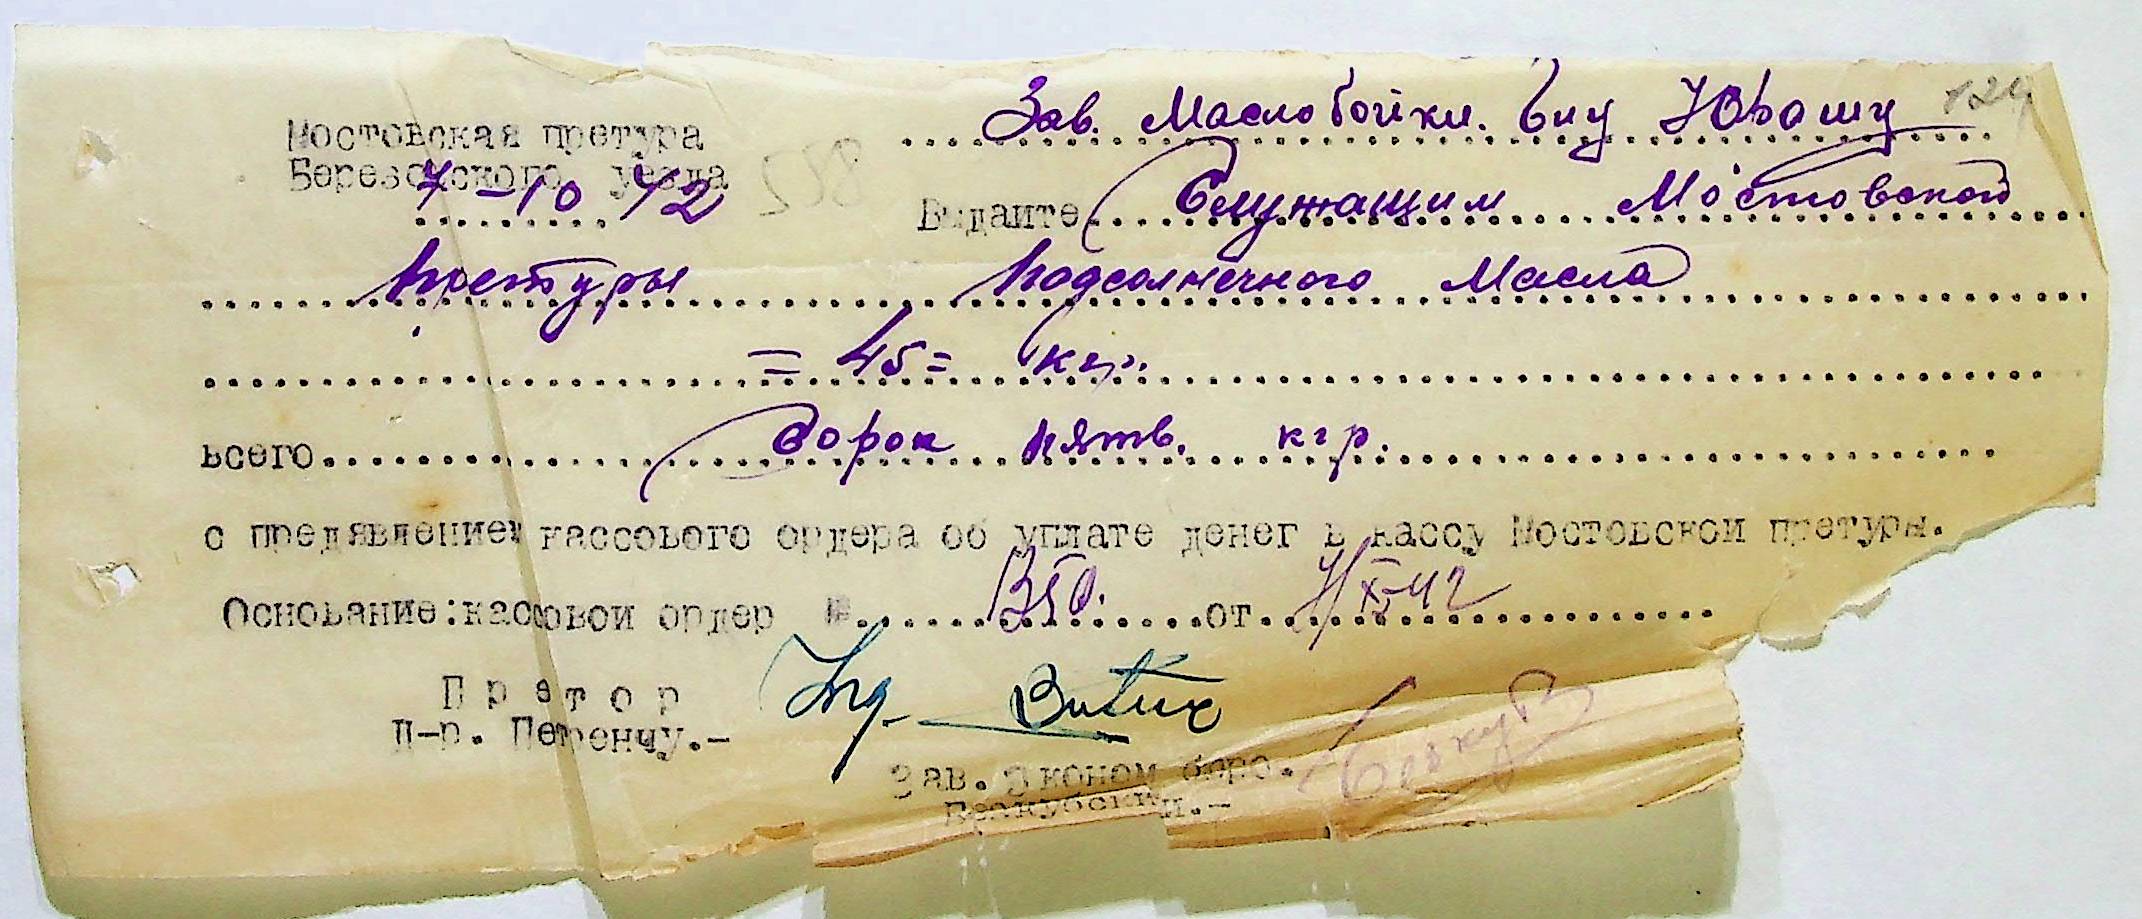 Мостовская претура
Березовского уезда
7-10 42
Зав. Маслобойки. Юрашу
124
Выдайте Служащим Мостовской
претуры подсолнечного масла
= 45 = кгр.
всего сорок пять. кгр.
с предявлением кассового ордера об уплате денег в кассу Мостовской претуры.
Основание: кассовой ордер № 350. от 7/X 42
Претор
П-р. Петренчу.-
Ing.
Зав. Эконом бюро.